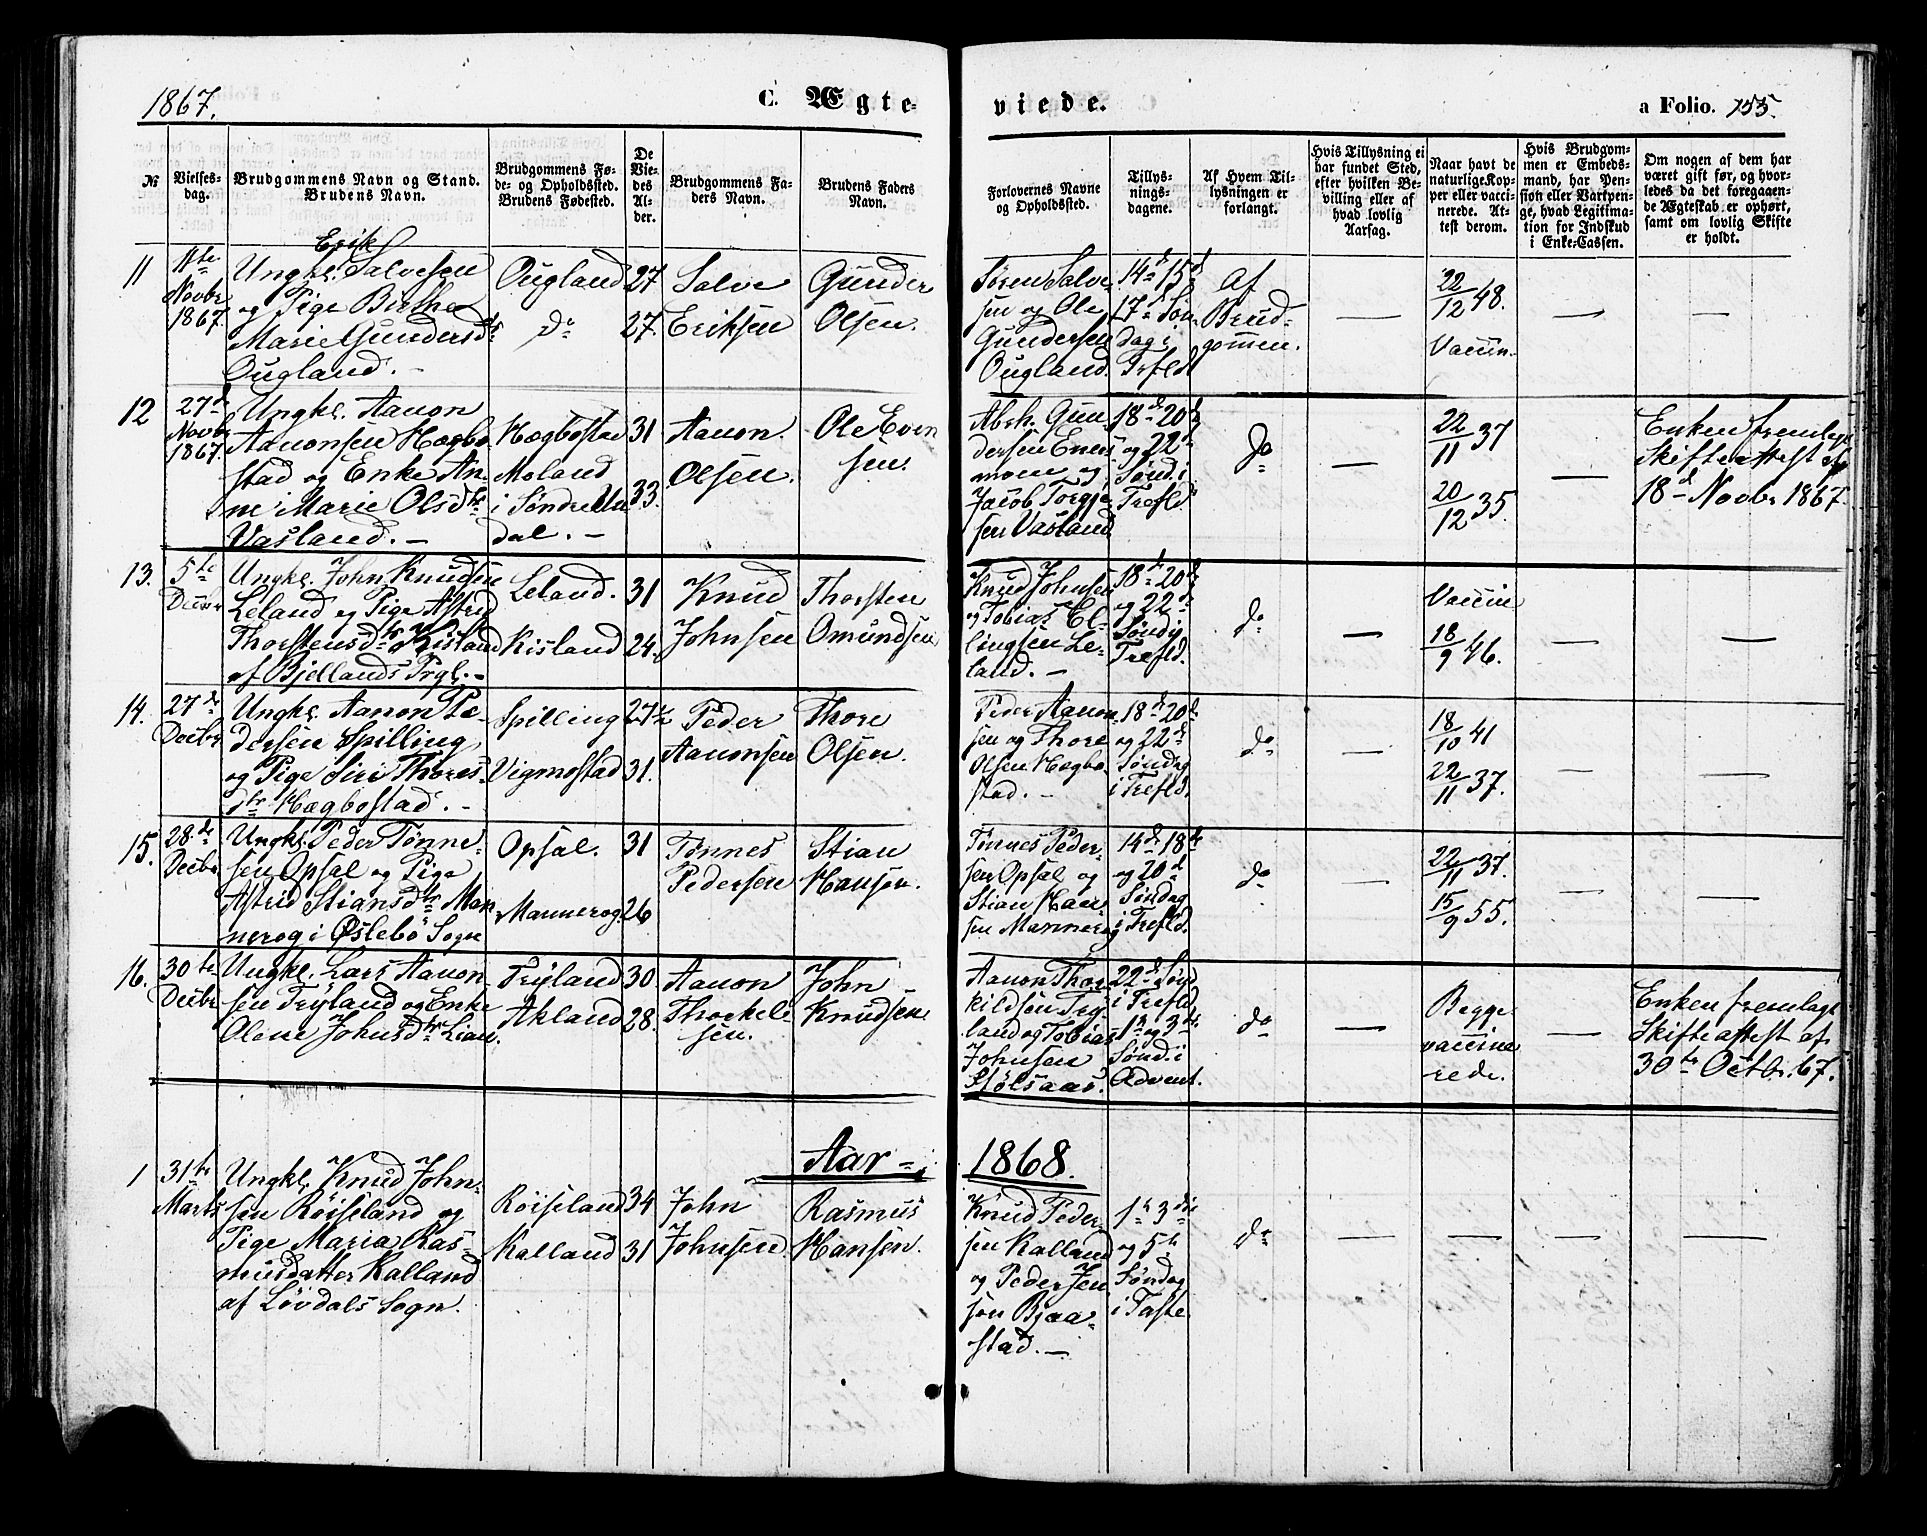 1867.
C. Ægte-
viede.
a Folio. 155.
№
Vielses-
dag.
Brudgommens Navn og Stand.
Brudens Navn.
Brudgommens Fø-
de- og Opholdssted.
Brudens Fødested.
De
Vie-
des
Al-
der.
Brudgommens Fa-
ders Navn.
Brudens Faders
Navn.
Forlovernes Navne
og Opholdssted.
Tillys-
nings-
dagene.
Af Hvem Til-
lysningen er
forlangt.
Hvis Tillysning ei
har fundet Sted,
efter hvilken Be-
villing eller af
hvad lovlig
Aarsag.
Naar havt de
naturlige Kop-
per eller vacci-
nerede. At-
test derom.
Hvis Brudgom-
men er Embeds-
mand, har Pen-
sion eller Vartpen-
ge, hvad Legitima-
tion for Indskud
i Enke-Cassen.
Om nogen af dem har
været gift før, og hvor-
ledes da det foregaaen-
de Ægteskab er ophørt,
samt om lovlig Skifte
er holdt.
11
11te
Novbr
1867.
Erik
Ungkl. Salvesen
og Pige Birthe
Marie Gundersdtr
Ougland. -
Ougland
do
27
27.
Salve
Eriksen
Gunder
Olsen.
Søren Salve-
sen og Ole
Gundersen
Ougland
14de 15d
17d Søn
dag i
Trfld
af
Brud-
gommen.
—
22/12 48.
Vaccin.
—
—
12
27d
Novb
1867.
Ungkl. Aanon
Aanonsen Hægbo
stad og Enke An-
ne Marie Olsdtr
Vasland. -
Hægbostad
Moland
i Søndre Un
dal. -
31
33.
Aanon
Olsen.
Ole Even
sen.
Abrh. Gun
dersen Enes
moen og
Jacob Torgje
sen Vasland
18de 20d
og 22d
Sønd. i
Trefld.
do
—
22/11 37
20/12 35.
—
Enken fremlagt
Skifteattest af
18d Novbr 1867.
13.
5te
Decbr
Ungkl. John Knudsen
Leland og Pige Astrid
Thorstensdtr Kisland
af Bjellands Prgl. -
Leland.
Kisland
31
24.
Knud
Johnsen
Thorsten
Omundsen
Knud Johnsen
og Tobias El-
lingsen Le-
land. -
18d 20d
og 22d
Sønd i
Trefld.
do
—
Vaccin
18/9 46.
—
—
14.
27de
Decbr
Ungkl. Aanon Pe-
dersen Spilling
og Pige Siri Thores-
dtr Hægbostad. -
Spilling
Vigmostad
27
31.
Peder
Aanonsen
Thore
Olsen.
Peder Aanon
sen og Thore
Olsen Hægbo
stad. -
18d 20d
og 22d
Søndag
i Trefld.
do
—
18/10 41
22/11 37.
—
—
15.
28de
Decbr
Ungkl. Peder Tønne-
sen Opsal og Pige
Astrid Stiansdtr Man
nerog i Øslebø Sogn
Opsal.
Mannerog.
31
26
Tønnes
Pedersen
Stian
Hansen.
Tønnes Peder-
sen Opsal og
Stian Han-
sen Mannerog
14de 18de
og 20d
Søndag
i Trefld.
do
—
22/11 37.
15/9 55.
—
—
16.
30te
Decbr
Ungkl. Lars Aanon
sen Tryland og Enke
Olene Johnsdtr Lian.
Tryland
Akland
30
28.
Aanon
Thorkels-
sen.
John
Knudsen
Aanon Thor
kildsen Try
land og Tobias
Johnsen
Stølsaas.
22d Sønd
i Trefld.
1te og 3de
Sønd. i
Advent.
do
—
Begge
vaccine
rede.
—
Enken fremlagt
Skifteattest af
30te Octbr. 67.
Aar - 1868.
1
31te
Marts
Ungkl. Knud John-
sen Röiseland og
Pige Maria Ras-
musdatter Kalland
af Løvdals Sogn.
Röiseland
Kalland
34
31
John
Johnsen.
Rasmus
Hansen.
Knud Peder
sen Kalland
og Peder Jen
sen Bjaa-
stad. -
1te 3die
og 5te
Søndag
i Faste.
do
—
—
—
—